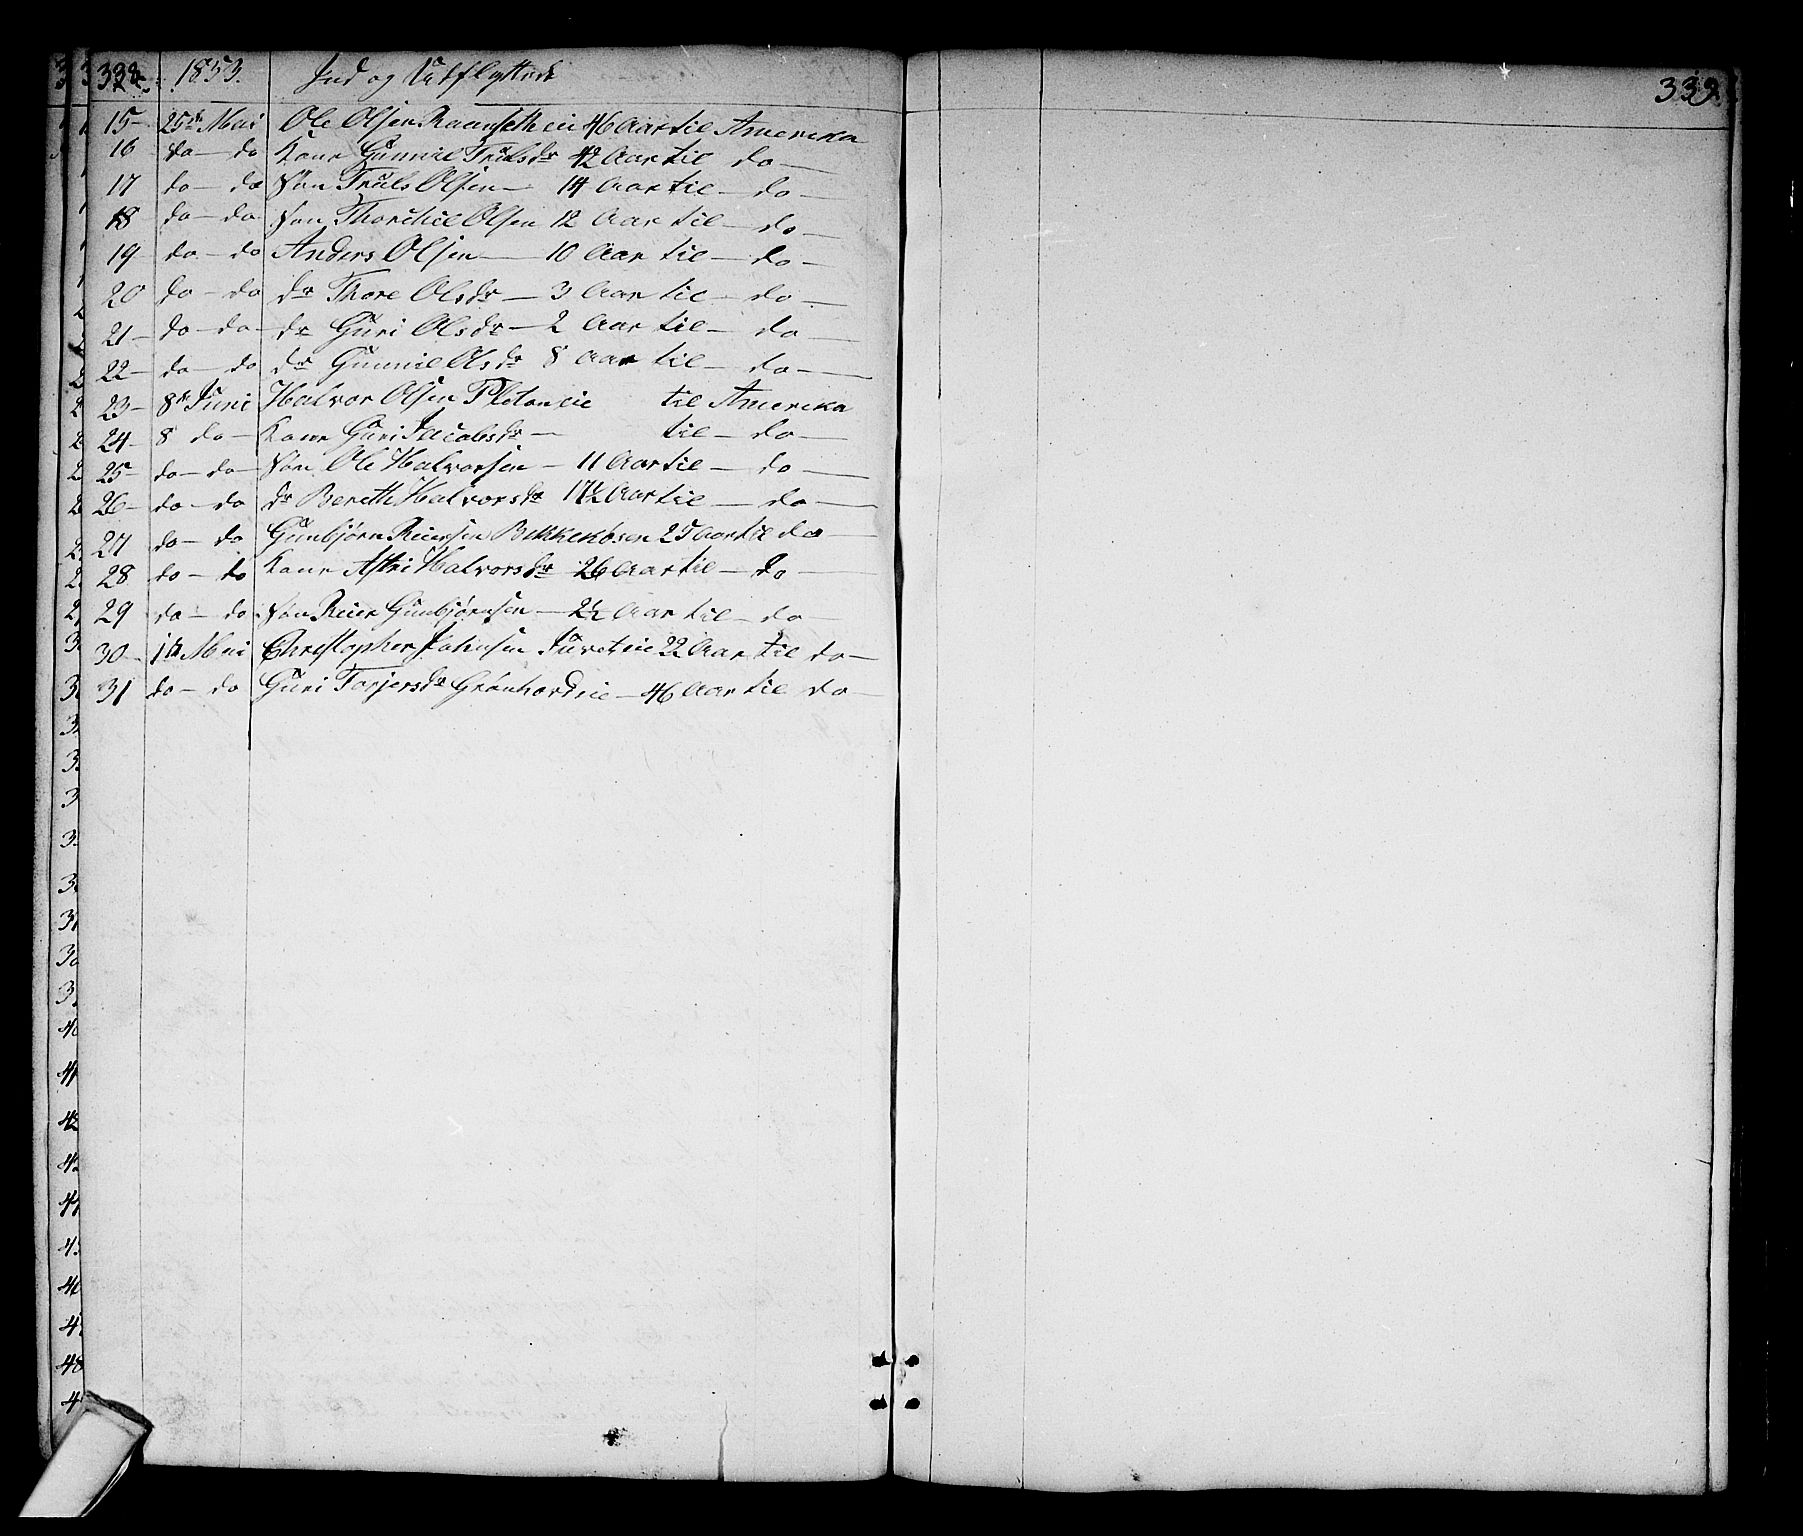 338. 1853. Ind og Udflyttede
15 25de Mai Ole Olsen Raanseth eie 46 Aar til Amerika
16 do — do Kone Gunnil Trulsdr 42 Aar til do —
17 do — do Søn Truls Olsen — 14 Aar til — do —
18 do — do Søn Thorchil Olsen 12 Aar til — do —
19 do — do Anders Olsen — 10 Aar til — do —
20 do — do dr Thore Olsdr — 3 Aar til — do —
21 — do — do — dr Guri Olsdr — 2 Aar til — do —
22 — do — do dr Gunnil Olsdr 8 Aar til — do —
23 — 8de Juni Halvor Olsen eie til Amerika
24 — 8 do — Kone Guri Jacobsdr — til — do —
25 — do — do — Søn Ole Halvorsen — 11 Aar til — do —
26 — do — do dr Bereth Halvorsdr 17½ Aar til — do —
27 do — do Gunbjørn Reiersen 25 Aar til do —
28 do — do Kone Astri Halvorsdr 26 Aar til — do —
29 do — do Søn Reier Gunbjørnsen — 2½ Aar til — do —
30 — Mai Christopher Johnsen Juveteie 22 Aar til do —
31 do — do Guri Torjersdr Grønhovdeie — 46 Aar til do —
339.